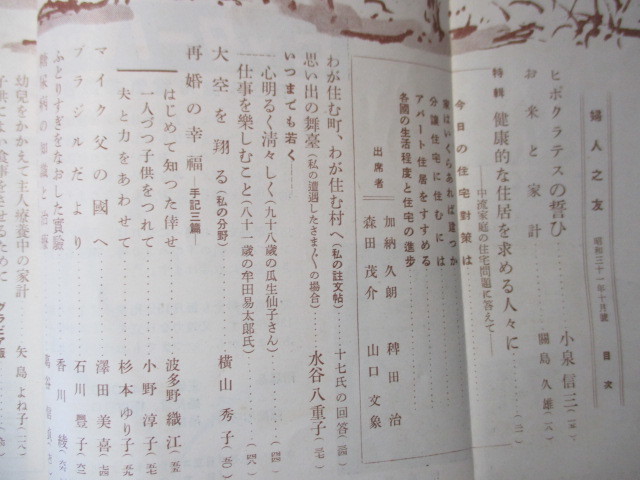 婦人之友 昭和三十一年十月号 目次
ヒポクラテスの誓ひ……小泉信三
お米と家計……關島久雄(六八)
特輯 健康的な住居を求める人々に……(二)
――中流家庭の住宅問題に答えて――
今日の住宅對策は
家はいくらあれば建つか
分讓住宅に住むには
アパート住居をすすめる
各國の生活程度と住宅の進步
出席者
加納久朗 稗田治
森田茂介 山口文象
わが住む町、わが住む村へ(私の註文帖)……十七氏の回答(二四)
思い出の舞臺(私の遭遇したさまざまの場合)……水谷八重子(三七)
いつまでも若く――
心明るく淸々しく(九十八歲の瓜生仙子さん)……(四四)
仕事を樂しむこと(八十一歲の牟田易太郞氏)……(四八)
大空を翔る(私の分野)……橫山秀子(五〇)
再婚の幸福――手記三篇――
はじめて知つた倖せ……波多野織江
一人づつ子供をつれて……小野淳子
夫と力をあわせて……杉本ゆり子
マイク父の國へ……澤田美喜
ブラジルだより……石川豐子
ふとりすぎをなおした實驗……香川綾
糖尿病の知識と治療
幼兒をかかえて主人療養中の家計……矢島よね子